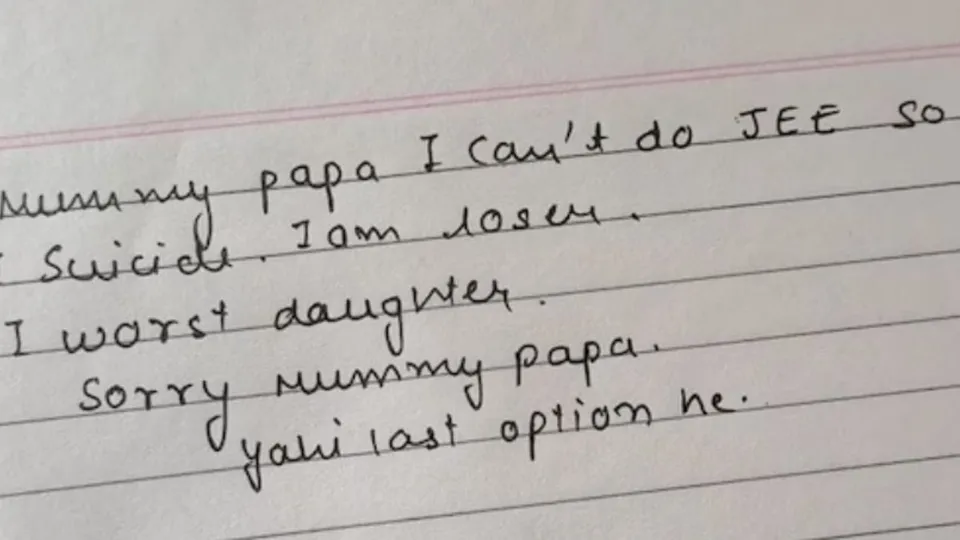 Mummy papa I can't do JEE So
I Suicide. I am loser.
I worst daughter.
Sorry Mummy papa.
yahi last option he.